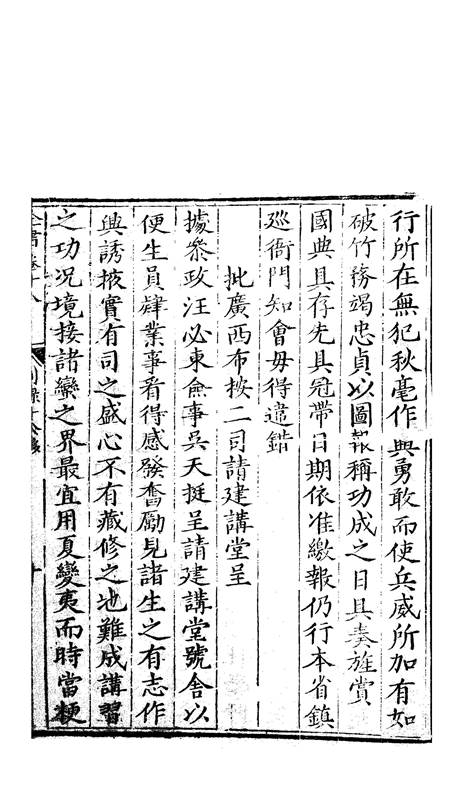 行所在無犯秋毫作興勇敢而使兵威所加有如
破竹務竭忠貞以圖報稱功成之日具奏旌賞
國典具存先具冠帶日期依准繳報仍行本省鎮
巡衙門知會毋得違錯
批廣西布按二司請建講堂呈
據叅政汪必東僉事吳天挺呈請建講堂號舍以
便生員肄業事看得感發奮勵見諸生之有志作
興誘掖實有司之盛心不有藏修之地難成講習
之功况境接諸蠻之界最宜用夏變夷而時當梗
全書卷十八